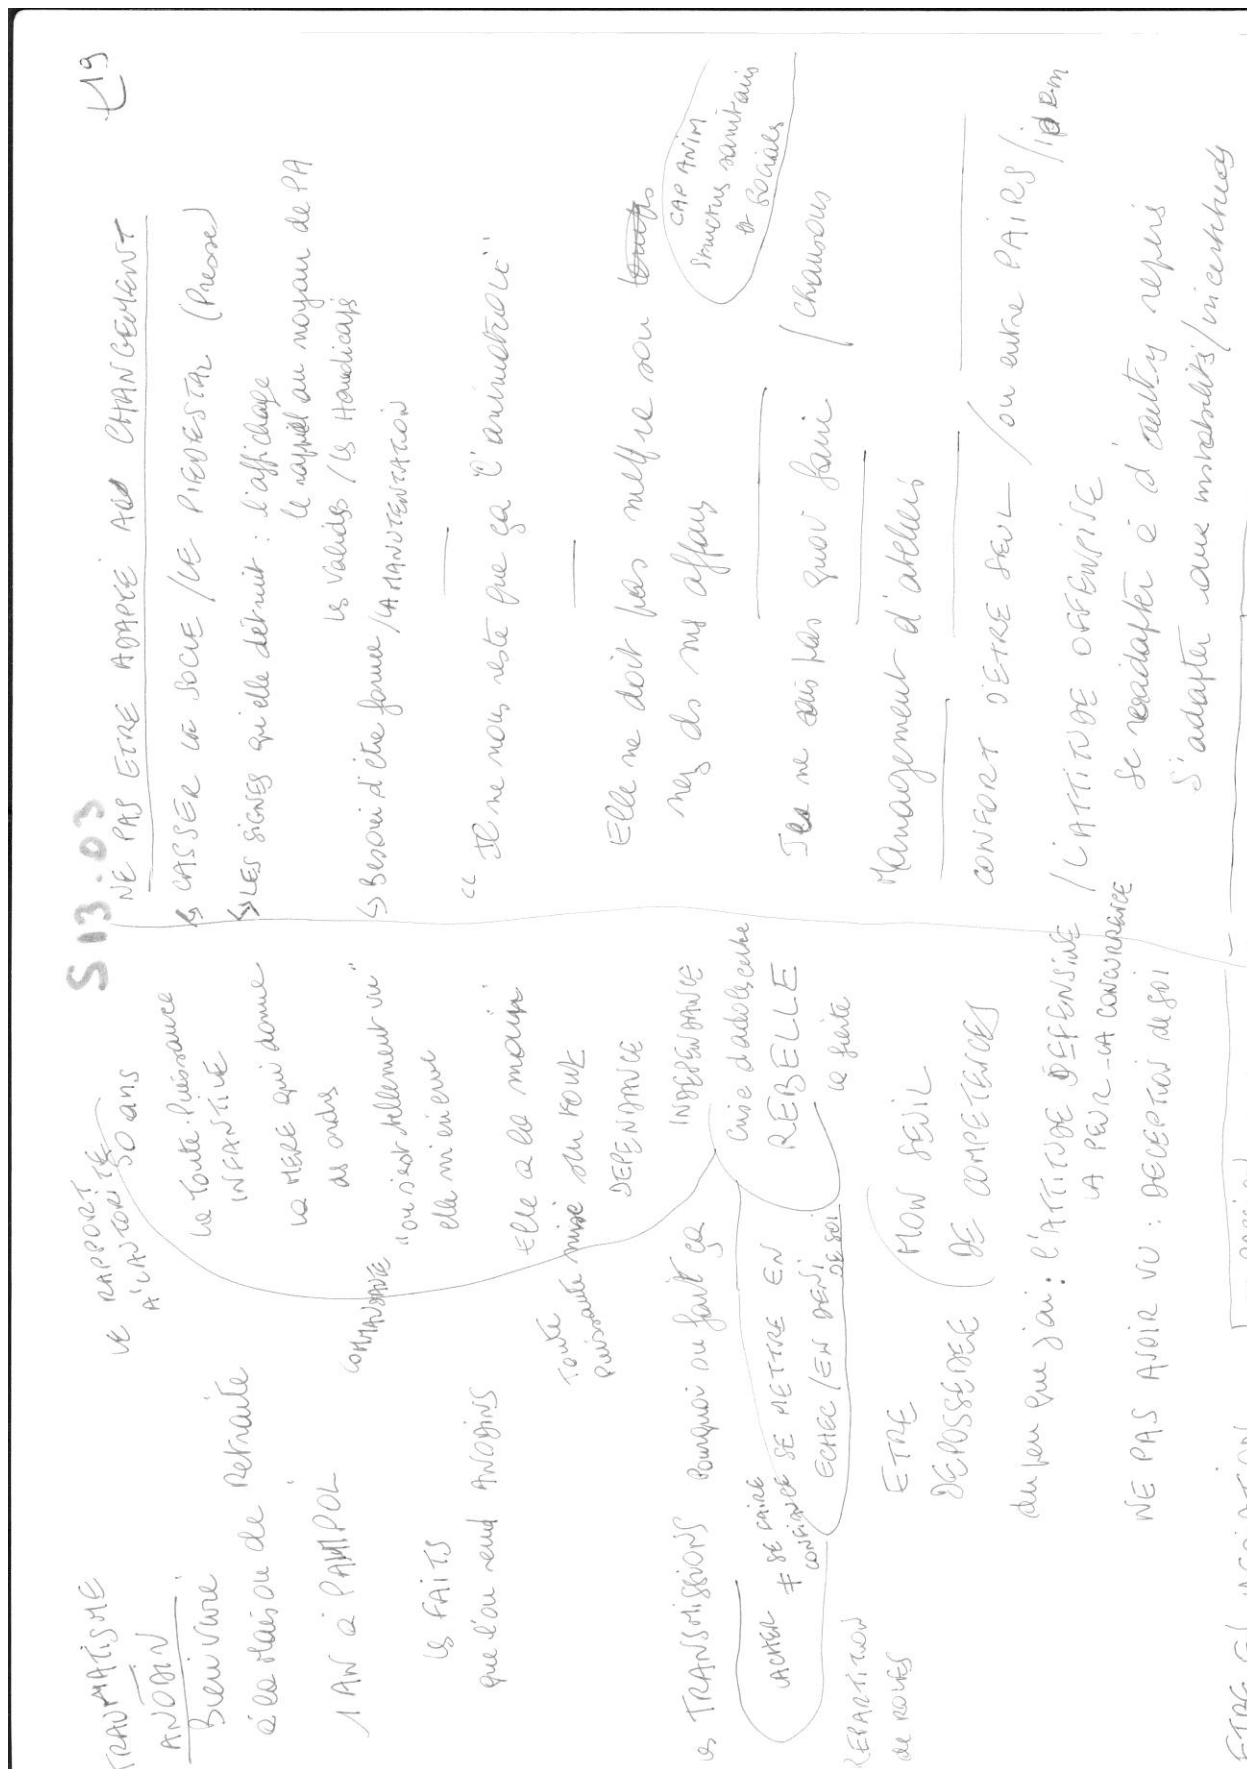 TRAUMATISME
ANODIN
Bien vivre
à la Maison de Retraite
1 AN à PAMPOL
les FAITS
que l'on rend ANODINS
les TRANSMISSIONS
Pourquoi on fait ça
LACHER ≠ SE FAIRE CONFIANCE
SE METTRE EN
ECHEC / EN DENI
DE SOI
REPARTITION
de ROLES
ETRE
DEPOSSEDER
du peu que j'ai : l'ATTITUDE DEFENSIVE
LA PEUR - LA CONCURRENCE
NE PAS AVOIR VU : DECEPTION de SOI
LE RAPPORT
A L'AUTORITE
50 ans
la Toute-Puissance
INFANTILE
la MERE qui donne
des ordres
COMMANDANTE
"on s'est tellement vu"
elle m'énerve
Elle a la main
mise sur tout
Toute
Puissante
DEPENDANCE
INDEPENDANCE
Crise d'adolescente
REBELLE
la fierté
MON SEUIL
DE COMPETENCES
S13.03
t19
NE PAS ETRE ADAPTÉ AU CHANGEMENT
↳ CASSER LE SOCLE / LE PIEDESTAL (Presse)
↳ LES SIGNES qu'elle détruit : l'affichage
le rappel au moyen de PA
les valides / les Handicapés
↳ Besoin d'être formé / LA MANUTENTION
"Il ne nous reste que ça l'animatrice"
Elle ne doit pas mettre son
nez ds mes affaires
CAP ANIM
Structures sanitaires
et sociales
Je ne sais pas quoi faire / chansons
Management d'ateliers
CONFORT D'ETRE SEUL / ou entre PAIRS / idem
/ L'ATTITUDE OFFENSIVE
Se réadapter à d'autres repères
S'adapter aux instabilités / incertitudes